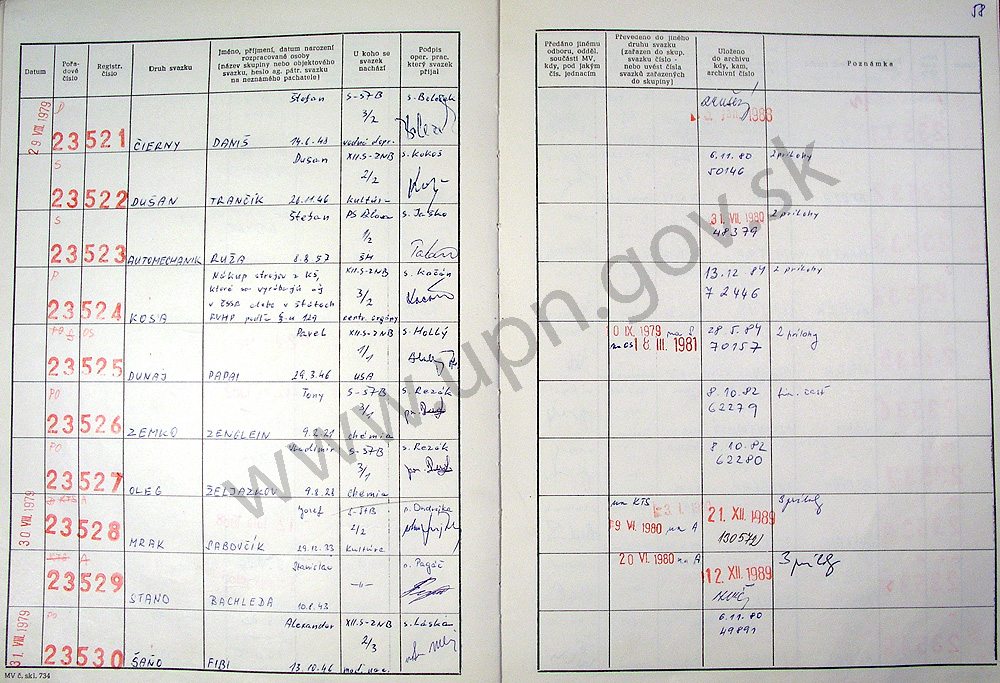 58
Datum
Pořadové číslo
Registr. číslo
Druh svazku
Jméno, příjmení, datum narození
rozpracované osoby
(název skupiny nebo objektového
svazku, heslo ag. pátr. svazku
na neznámého pachatele)
U koho se
svazek
nachází
Podpis
oper. prac.
který svazek
přijal
Předáno jinému
odboru, odděl.
součásti MV,
kdy, pod jakým
čís. jednacím
Převedeno do jiného
druhu svazku
(zařazen do skup.
svazku číslo -
nebo uvést čísla
svazků zařazených
do skupiny)
Uloženo
do archivu
kdy, kam,
archivní číslo
Poznámka
29. VIII. 1979
23521 ČIERNY DANIŠ Štefan 14.6.48 S-ŠTB 3/2
1988
S
23522 DUŠAN TRANČÍK Dušan 26.11.46 XII.S-ZNB 2/2 kultúra s. Kokoš
6.11.80
50146
2 prílohy
S
23523 AUTOMECHANIK RUŽA Štefan 8.8.57 1/2 ŠM s. Jaško
31. VII. 1980
48379
2 prílohy
P
23524 KOSA
Nákup strojov z KŠ,
ktoré sa vyrábajú aj
v ČSSR alebo v štátoch
RVHP podľa §-u 129
XII.S-ZNB 3/2 centr. orgány
13.12.84
72446
2 prílohy
23525 DUNAJ PAPAI Pavel 29.3.46 XII.S-ZNB 1/1 USA s. Hollý
10. IX. 1979 na S
18. III. 1981
28.5.84
70157
2 prílohy
PO
23526 ZEMKO ZENGLEIN Tony 9.2.21 S-ŠTB 3/1 chémia s. Rezák
8.10.82
62279
PO
23527 OLEG ŽELJAZKOV Vladimir 9.8.28 S-ŠTB 3/1 chémia s. Rezák
8.10.82
62280
30. VIII. 1979
23528 MRAK SABOVČÍK Jozef 29.12.33 S-ŠTB 2/2 Kultúra s. Ondrejka
na KTS
9. VI. 1980 na A
21. XII. 1989
130572
KTS A
23529 STANO BACHLEDA Stanislav 10.8.43 -"- s. Pagáč
20. VI. 1980 na A
12. XII. 1989
31. VIII. 1979
PO
23530 ŠAŇO FIBI Alexander 13.10.46 XII.S-ZNB 2/3 s. Láska
6.11.80
49891
MV č. skl. 734
www.upn.gov.sk